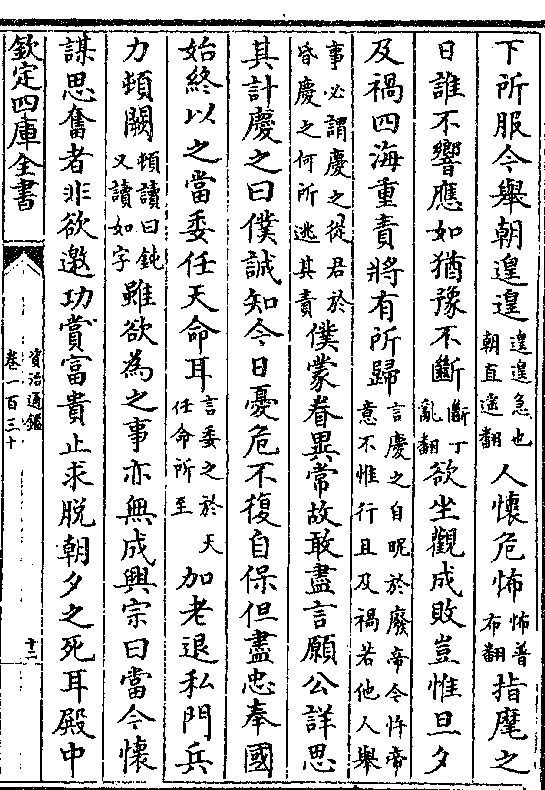 下所服今舉朝遑遑遑遑急也朝直遥翻人懷危怖怖普布翻指麾之
日誰不響應如猶豫不斷斷丁亂翻欲坐觀成敗豈惟旦夕
及禍四海重責將有所歸言慶之自昵於廢帝令忤帝意不惟行且及禍若他人舉
事必謂慶之從君於昏慶之何所逃其責僕蒙眷異常故敢盡言願公詳思
其計慶之曰僕誠知今日憂危不復自保但盡忠奉國
始終以之當委任天命耳言委之於天任命所至加老退私門兵
力頓闕頓讀曰鈍又讀如字雖欲為之事亦無成興宗曰當今懷
謀思奮者非欲邀功賞富貴止求脱朝夕之死耳殿中
欽定四庫全書
資治通鑑
卷一百三十
十二